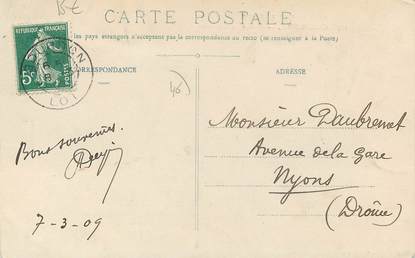 CARTE POSTALE
les pays étrangers n'acceptent pas la correspondance au recto (se renseigner à la Poste)
RRESPONDANCE
ADRESSE
RÉPUBLIQUE FRANÇAISE
5c
POSTES
LOT
46
Bons souvenirs
7-3-09
Monsieur Daubremet
Avenue de la Gare
Nyons
(Drôme)